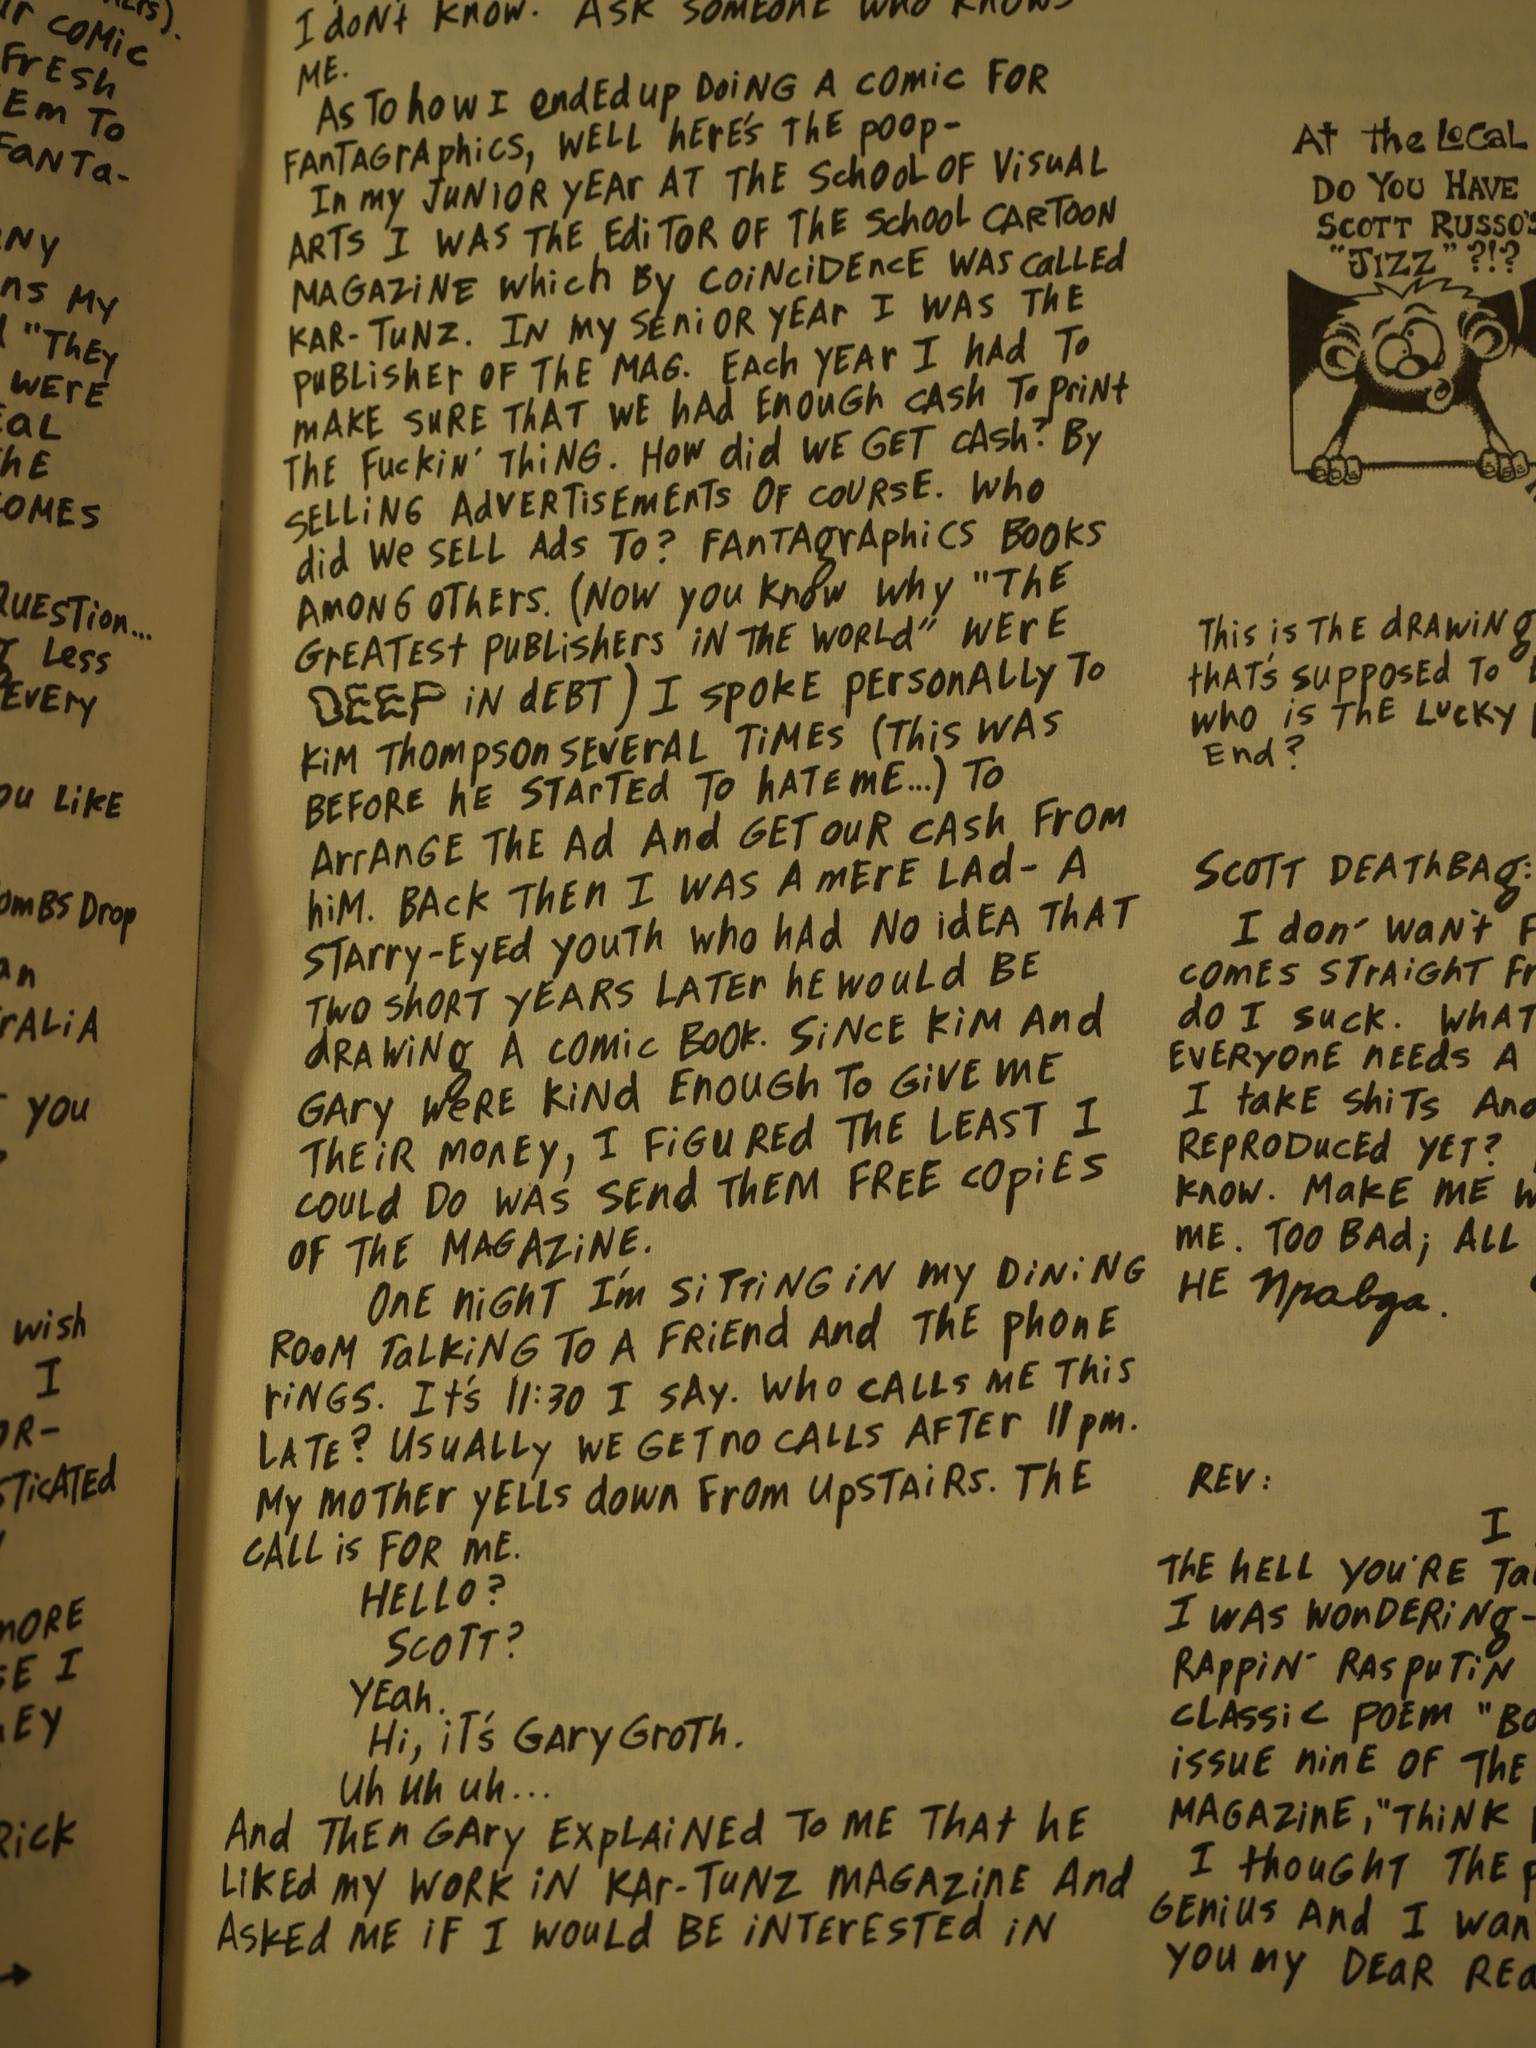 ur comic
Fresh
Em To
FANTA-
ny
ns my
"They
were
eal
The
omes
Question...
Less
Every
ou like
ombs Drop
an
ralia
you
wish
I
or-
sticated
more
se I
hey
Rick
I don't know. Ask someone who knows
me.
As to how I ended up doing a comic for
Fantagraphics, well here's the poop-
In my junior year at the School of Visual
Arts I was the editor of the school cartoon
magazine which by coincidence was called
Kar-Tunz. In my senior year I was the
publisher of the mag. Each year I had to
make sure that we had enough cash to print
the fuckin' thing. How did we get cash? By
selling advertisements of course. Who
did we sell ads to? Fantagraphics Books
among others. (Now you know why "The
Greatest Publishers in the World" were
DEEP in debt) I spoke personally to
Kim Thompson several times (This was
before he started to hate me...) to
arrange the ad and get our cash from
him. Back then I was a mere lad- a
starry-eyed youth who had no idea that
two short years later he would be
drawing a comic book. Since Kim and
Gary were kind enough to give me
their money, I figured the least I
could do was send them free copies
of the magazine.
One night I'm sitting in my dining
room talking to a friend and the phone
rings. It's 11:30 I say. Who calls me this
late? Usually we get no calls after 11 pm.
My mother yells down from upstairs. The
call is for me.
Hello?
Scott?
Yeah.
Hi, it's Gary Groth.
Uh uh uh...
And then Gary explained to me that he
liked my work in Kar-Tunz magazine and
asked me if I would be interested in
At the Local
Do You Have
Scott Russo's
"Jizz"?!?
This is the drawing
that's supposed to
who is the lucky
end?
Scott Deathbag:
I don' want
comes straight
do I suck. What
everyone needs a
I take shits and
reproduced yet?
know. Make me
me. Too bad; all
HE
Rev:
I
the hell you're
I was wondering-
Rappin' Rasputin
classic poem
issue nine of the
magazine, "Think
I thought the
genius and I
you my dear